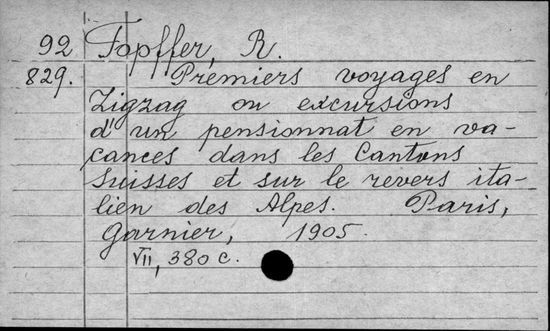 92 Topffer, R.
829. Premiers voyages en
Zigzag ou excursions
d'un pensionnat en va-
cances dans les Cantons
Suisses et sur le revers ita-
lien des Alpes. Paris,
Garnier, 1905.
VII, 380 c.